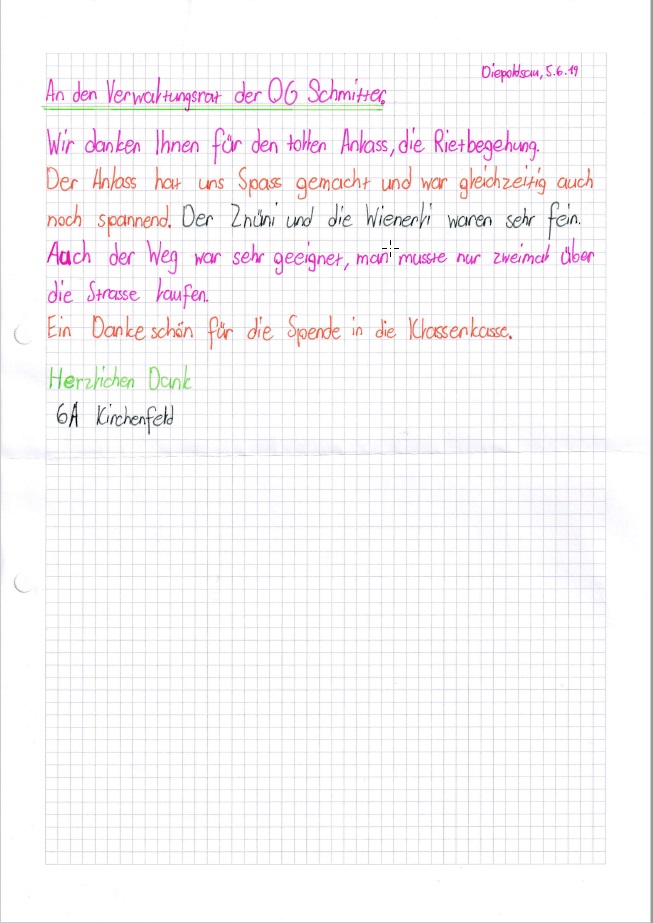 Diepoldsau, 5.6.19
An den Verwaltungsrat der OG Schmitter.
Wir danken Ihnen für den tollen Anlass, die Rietbegehung.
Der Anlass hat uns Spass gemacht und war gleichzeitig auch
noch spannend. Der Znüni und die Wienerli waren sehr fein.
Auch der Weg war sehr geeignet, man musste nur zweimal über
die Strasse laufen.
Ein Dankeschön für die Spende in die Klassenkasse.
Herzlichen Dank
6A Kirchenfeld